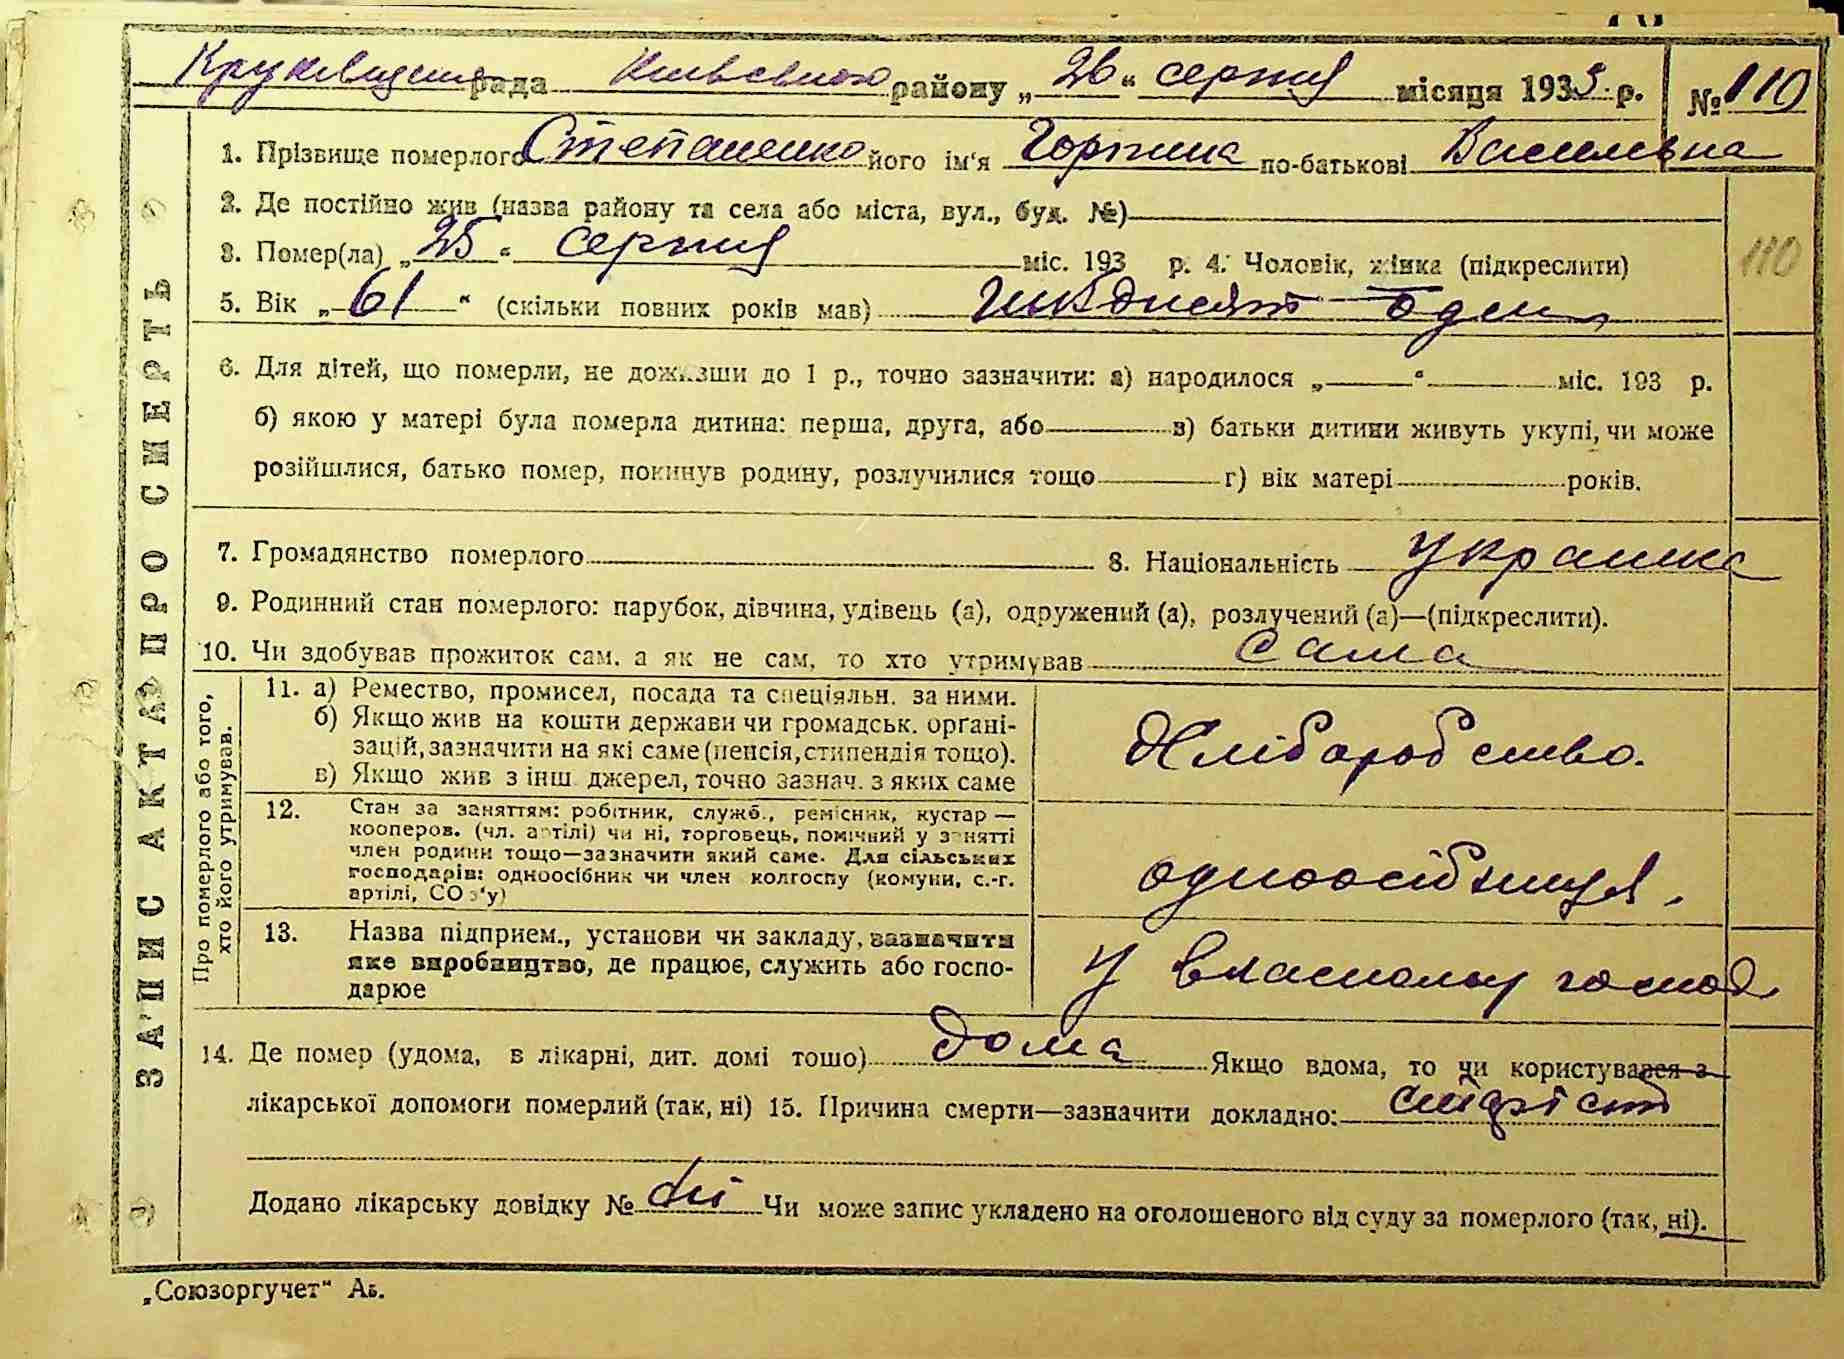 рада Київського району „26“ серпня місяця 1933 р. № 110
1. Прізвище померлого Степаненко його ім'я Горпина по-батькові Василівна
2. Де постійно жив (назва району та села або міста, вул., буд. №)
3. Помер(ла) „25“ серпня міс. 193 р. 4. Чоловік, жінка (підкреслити)
110
5. Вік „61“ (скільки повних років мав) шісдисят один
6. Для дітей, що померли, не доживши до 1 р., точно зазначити: а) народилося „ “ міс. 193 р.
б) якою у матері була померла дитина: перша, друга, або в) батьки дитини живуть укупі, чи може
розійшлися, батько помер, покинув родину, розлучилися тощо г) вік матері років.
7. Громадянство померлого 8. Національність українка
9. Родинний стан померлого: парубок, дівчина, удівець (а), одружений (а), розлучений (а)—(підкреслити).
10. Чи здобував прожиток сам, а як не сам, то хто утримував сама
Про померлого або того,
хто його утримував.
11. а) Ремество, промисел, посада та спеціяльн. за ними.
б) Якщо жив на кошти держави чи громадськ. органі-
зацій, зазначити на які саме (пенсія, стипендія тощо).
в) Якщо жив з інш. джерел, точно зазнач. з яких саме
Хліборобство.
12. Стан за заняттям: робітник, служб., ремісник, кустар —
кооперов. (чл. артілі) чи ні, торговець, помічний у занятті
член родини тощо—зазначити який саме. Для сільських
господарів: одноосібник чи член колгоспу (комуни, с.-г.
артілі, СОЗ'у)
одноосібниця.
13. Назва підприєм., установи чи закладу, зазначити
яке виробництво, де працює, служить або госпо-
дарює
у власному господ.
14. Де помер (удома, в лікарні, дит. домі тошо) дома Якщо вдома, то чи користувався з
лікарської допомоги померлий (так, ні) 15. Причина смерти—зазначити докладно: старість
Додано лікарську довідку № ні Чи може запис укладено на оголошеного від суду за померлого (так, ні).
ЗАПИС АКТА ПРО СМЕРТЬ
„Союзоргучет“ Аб.